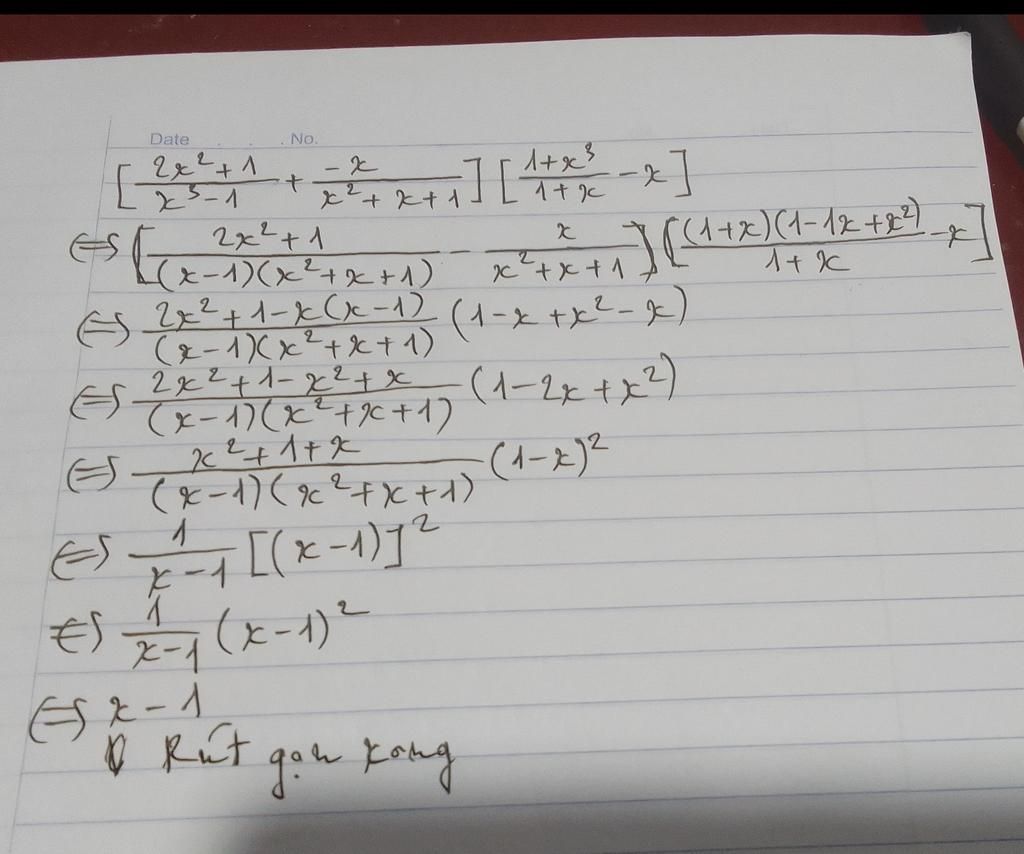 Date . . . No.
[ (2x² + 1)/(x³ - 1) + (-x)/(x² + x + 1) ] [ (1 + x³)/(1 + x) - x ]
⇔ [ (2x² + 1)/((x - 1)(x² + x + 1)) - x/(x² + x + 1) ] [ ((1 + x)(1 - 1x + x²))/(1 + x) - x ]
⇔ (2x² + 1 - x(x - 1))/((x - 1)(x² + x + 1)) (1 - x + x² - x)
⇔ (2x² + 1 - x² + x)/((x - 1)(x² + x + 1)) (1 - 2x + x²)
⇔ (x² + 1 + x)/((x - 1)(x² + x + 1)) (1 - x)²
⇔ 1/(x - 1) [(x - 1)]²
⇔ 1/(x - 1) (x - 1)²
⇔ x - 1
Rút gọn xong